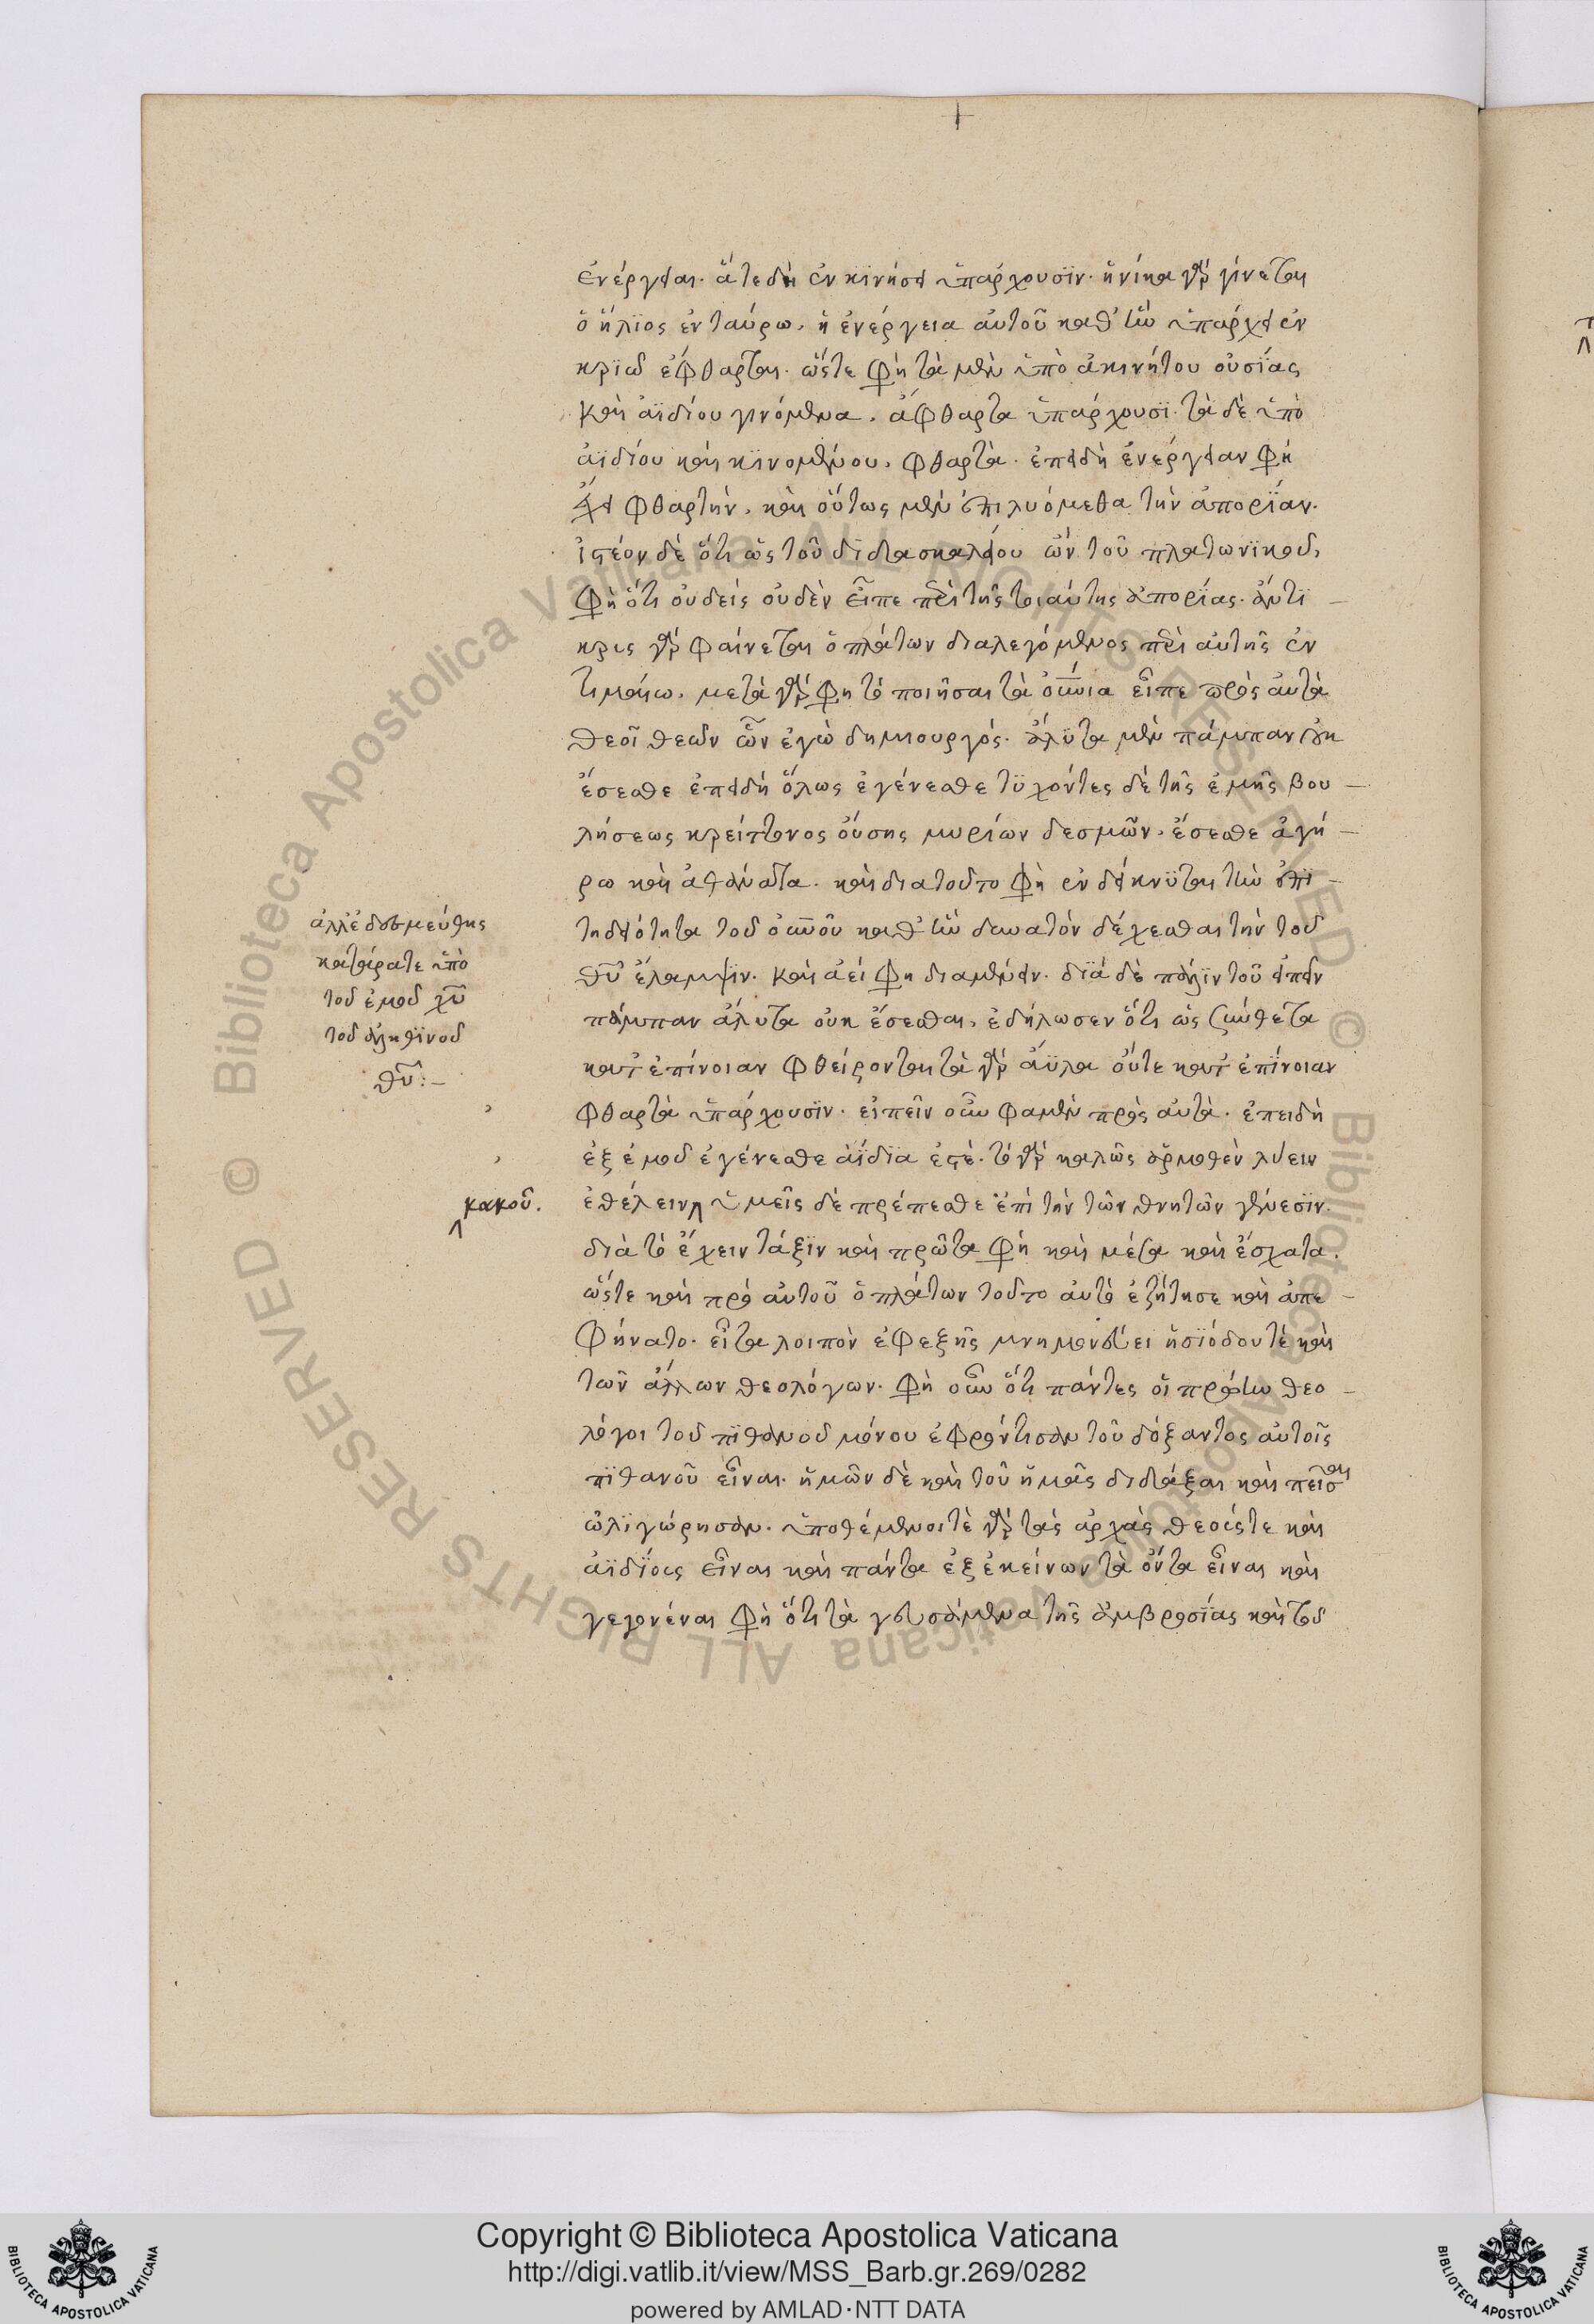 ἐνέργειαι. ἅτε δὴ ἐν κϊνήσει ὑπάρχουσϊν. ἡνίκα γὰρ γίνεται
ὁ ἥλϊος ἐν ταύρω. ἡ ἐνέργεια αὐτοῦ καθ' ἣν ὑπάρχει ἐν
κριῶ ἐφθαρται. ὥστε φη τὰ μὲν ὑπὸ ἀκινήτου οὐσΐας
καὶ ἀϊδίου γινόμενα. ἄφθαρτα ὑπάρχουσϊ. τὰ δὲ ὑπὸ
ἀϊδίου καὶ κϊνουμένου. φθαρτὰ. ἐπειδὴ ἐνέργειαν φη
ἔχει φθαρτήν. καὶ οὕτως μὲν ἐπιλυόμεθα τὴν ἀπορΐαν.
ἰστέον δὲ ὅτι ὡς τοῦ διδασκαλείου ὢν τοῦ πλατωνϊκοῦ.
φὴ ὅτι οὐδεὶς οὐδὲν εἶπε περὶ τῆς τοιαύτης ἀπορΐας. ἄντϊ -
κρις γὰρ φαίνεται ὁ πλάτων διαλεγόμενος περὶ αὐτῆς ἐν
τιμαίω. μετὰ γὰρ φη τὸ ποιῆσαι τὰ οὐνια εἶπε πρὸς αὐτὰ
θεοὶ θεῶν ὧν ἐγὼ δημιουργός. ἄλϋτα μὲν πάμπαν οὐκ
ἔσεσθε ἐπειδὴ ὅλως ἐγένεσθε τϋχόντες δὲ τῆς ἐμῆς βου -
λήσεως κρείττονος οὔσης μυρίων δεσμῶν. ἔσεσθε ἀγή -
ρω καὶ ἀθάνατα. καὶ διατοῦτο φὴ ἐνδείκνϋται τὴν ἐπϊ -
τηδειότητα τοῦ οὐνοῦ καθ' ἣν δυνατὸν δέχεσθαι τὴν τοῦ
θυ ἔλαμψϊν. καὶ ἀεί φη διαμένειν. δϊὰ δὲ πάλϊν τοῦ εἰπεῖν
πάμπαν ἄλυτα οὐκ ἔσεσθαι. ἐδήλωσεν ὅτι ὡς σύνθετα
κατ ἐπίνοιαν φθείρονται τὰ γὰρ ἄϋλα οὔτε κατ ἐπΐνοιαν
φθαρτὰ ὑπάρχουσϊν. εἰπεῖν οὖν φαμὲν πρὸς αὐτὰ. ἐπειδὴ
ἐξ ἐμοῦ ἐγένεσθε ἀΐδϊα ἐστέ. τὸ γὰρ καλῶς ἁρμοσθὲν λύειν
ἐθέλειν ὑμεῖς δὲ τρέπεσθε ἐπὶ τὴν τῶν θνητῶν γένεσϊν.
διὰ τὸ ἔχειν τάξϊν καὶ πρῶτα φή καὶ μέσα καὶ ἔσχατα.
ὥστε καὶ πρὸ αὐτοῦ ὁ πλάτων τοῦτο αὐτὸ ἐζήτησε καὶ ἀπε -
φήνατο. εἶτα λοιπὸν ἐφεξῆς μνημονεύει ἡσϊόδου τὲ καὶ
τῶν ἄλλων θεολόγων. φὴ οὖν ὅτι πάντες οἱ πρώτω θεο -
λόγοι τοῦ πϊθανοῦ μόνου ἐφρόντισαν τοῦ δόξαντος αὐτοῖς
πϊθανοῦ εἶναι. ἡμῶν δὲ καὶ τοῦ ἡμᾶς διδάξαι καὶ πεῖσαι
ὠλϊγώρησαν. ὑποθέμενοι τὲ γὰρ τὰς ἀρχὰς θεοὺς τε καὶ
ἀϊδΐους εἶναι καὶ πάντα ἐξ ἐκείνων τὰ ὄντα εἶναι καὶ
γεγονέναι φὴ ὅτι τὰ γευσάμενα τῆς ἀμβροσΐας καὶ τοῦ
ἀλλ' ἐδεσμεύθης
κατάρατε ὑπὸ
τοῦ ἐμοῦ χυ
τοῦ ἀληθϊνοῦ
θυ:-
κακοῦ.
Copyright © Biblioteca Apostolica Vaticana
http://digi.vatlib.it/view/MSS_Barb.gr.269/0282
powered by AMLAD·NTT DATA
BIBLIOTECA APOSTOLICA VATICANA
BIBLIOTECA APOSTOLICA VATICANA
© Biblioteca Apostolica Vaticana ALL RIGHTS RESERVED
© Biblioteca Apostolica Vaticana ALL RIGHTS RESERVED